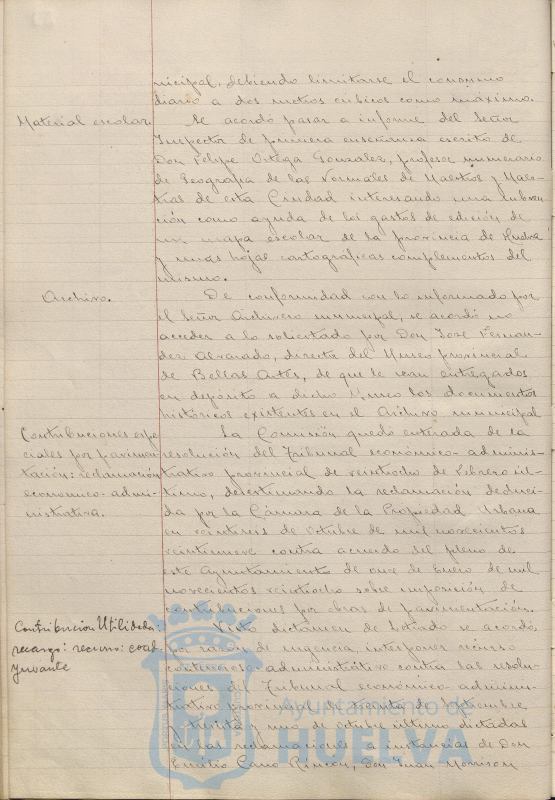 nicipal, debiendo limitarse el consumo
diario a dos metros cúbicos como máximo.
Material escolar.
Se acordó pasar a informe del Señor
Inspector de primera enseñanza escrito de
Don Felipe Ortega Gonzalez, profesor numerario
de Geografía de las Normales de Maestros y Maes-
tras de esta Ciudad interesando una subven-
ción como ayuda de los gastos de edición de
un mapa escolar de la provincia de Huelva
y unas hojas cartográficas complementos del
mismo.
Archivo.
De conformidad con lo informado por
el Señor Archivero municipal, se acordó no
acceder a lo solicitado por Don José Fernan-
dez Alvarado, director del Museo provincial
de Bellas Artes, de que le sean entregados
en depósito a dicho Museo los documentos
históricos existentes en el Archivo municipal
Contribuciones espe-
ciales por pavimen-
tación: reclamación
economico-admi-
nistrativa.
La Comisión quedó enterada de la
resolución del Tribunal económico-adminis-
trativo provincial de veintiocho de Febrero úl-
timo, desestimando la reclamación deduci-
da por la Cámara de la Propiedad Urbana
en veintiseis de Octubre de mil novecientos
veintinueve contra acuerdo del pleno de
este Ayuntamiento de once de Enero de mil
novecientos veintiocho sobre imposición de
contribuciones por obras de pavimentación.
Contribución Utilidades:
recargo: recurso:
yuvante
Visto dictámen de Letrado se acordó,
por razón de urgencia, interponer recurso
contencioso-administrativo contra las resolu-
ciones del Tribunal económico-adminis-
trativo provincial de treinta de Septiembre
y treinta y uno de octubre último dictadas
en las reclamaciones a instancias de Don
Emilio Cano Rincón, Don Juan Morrison
Ayuntamiento de
HUELVA